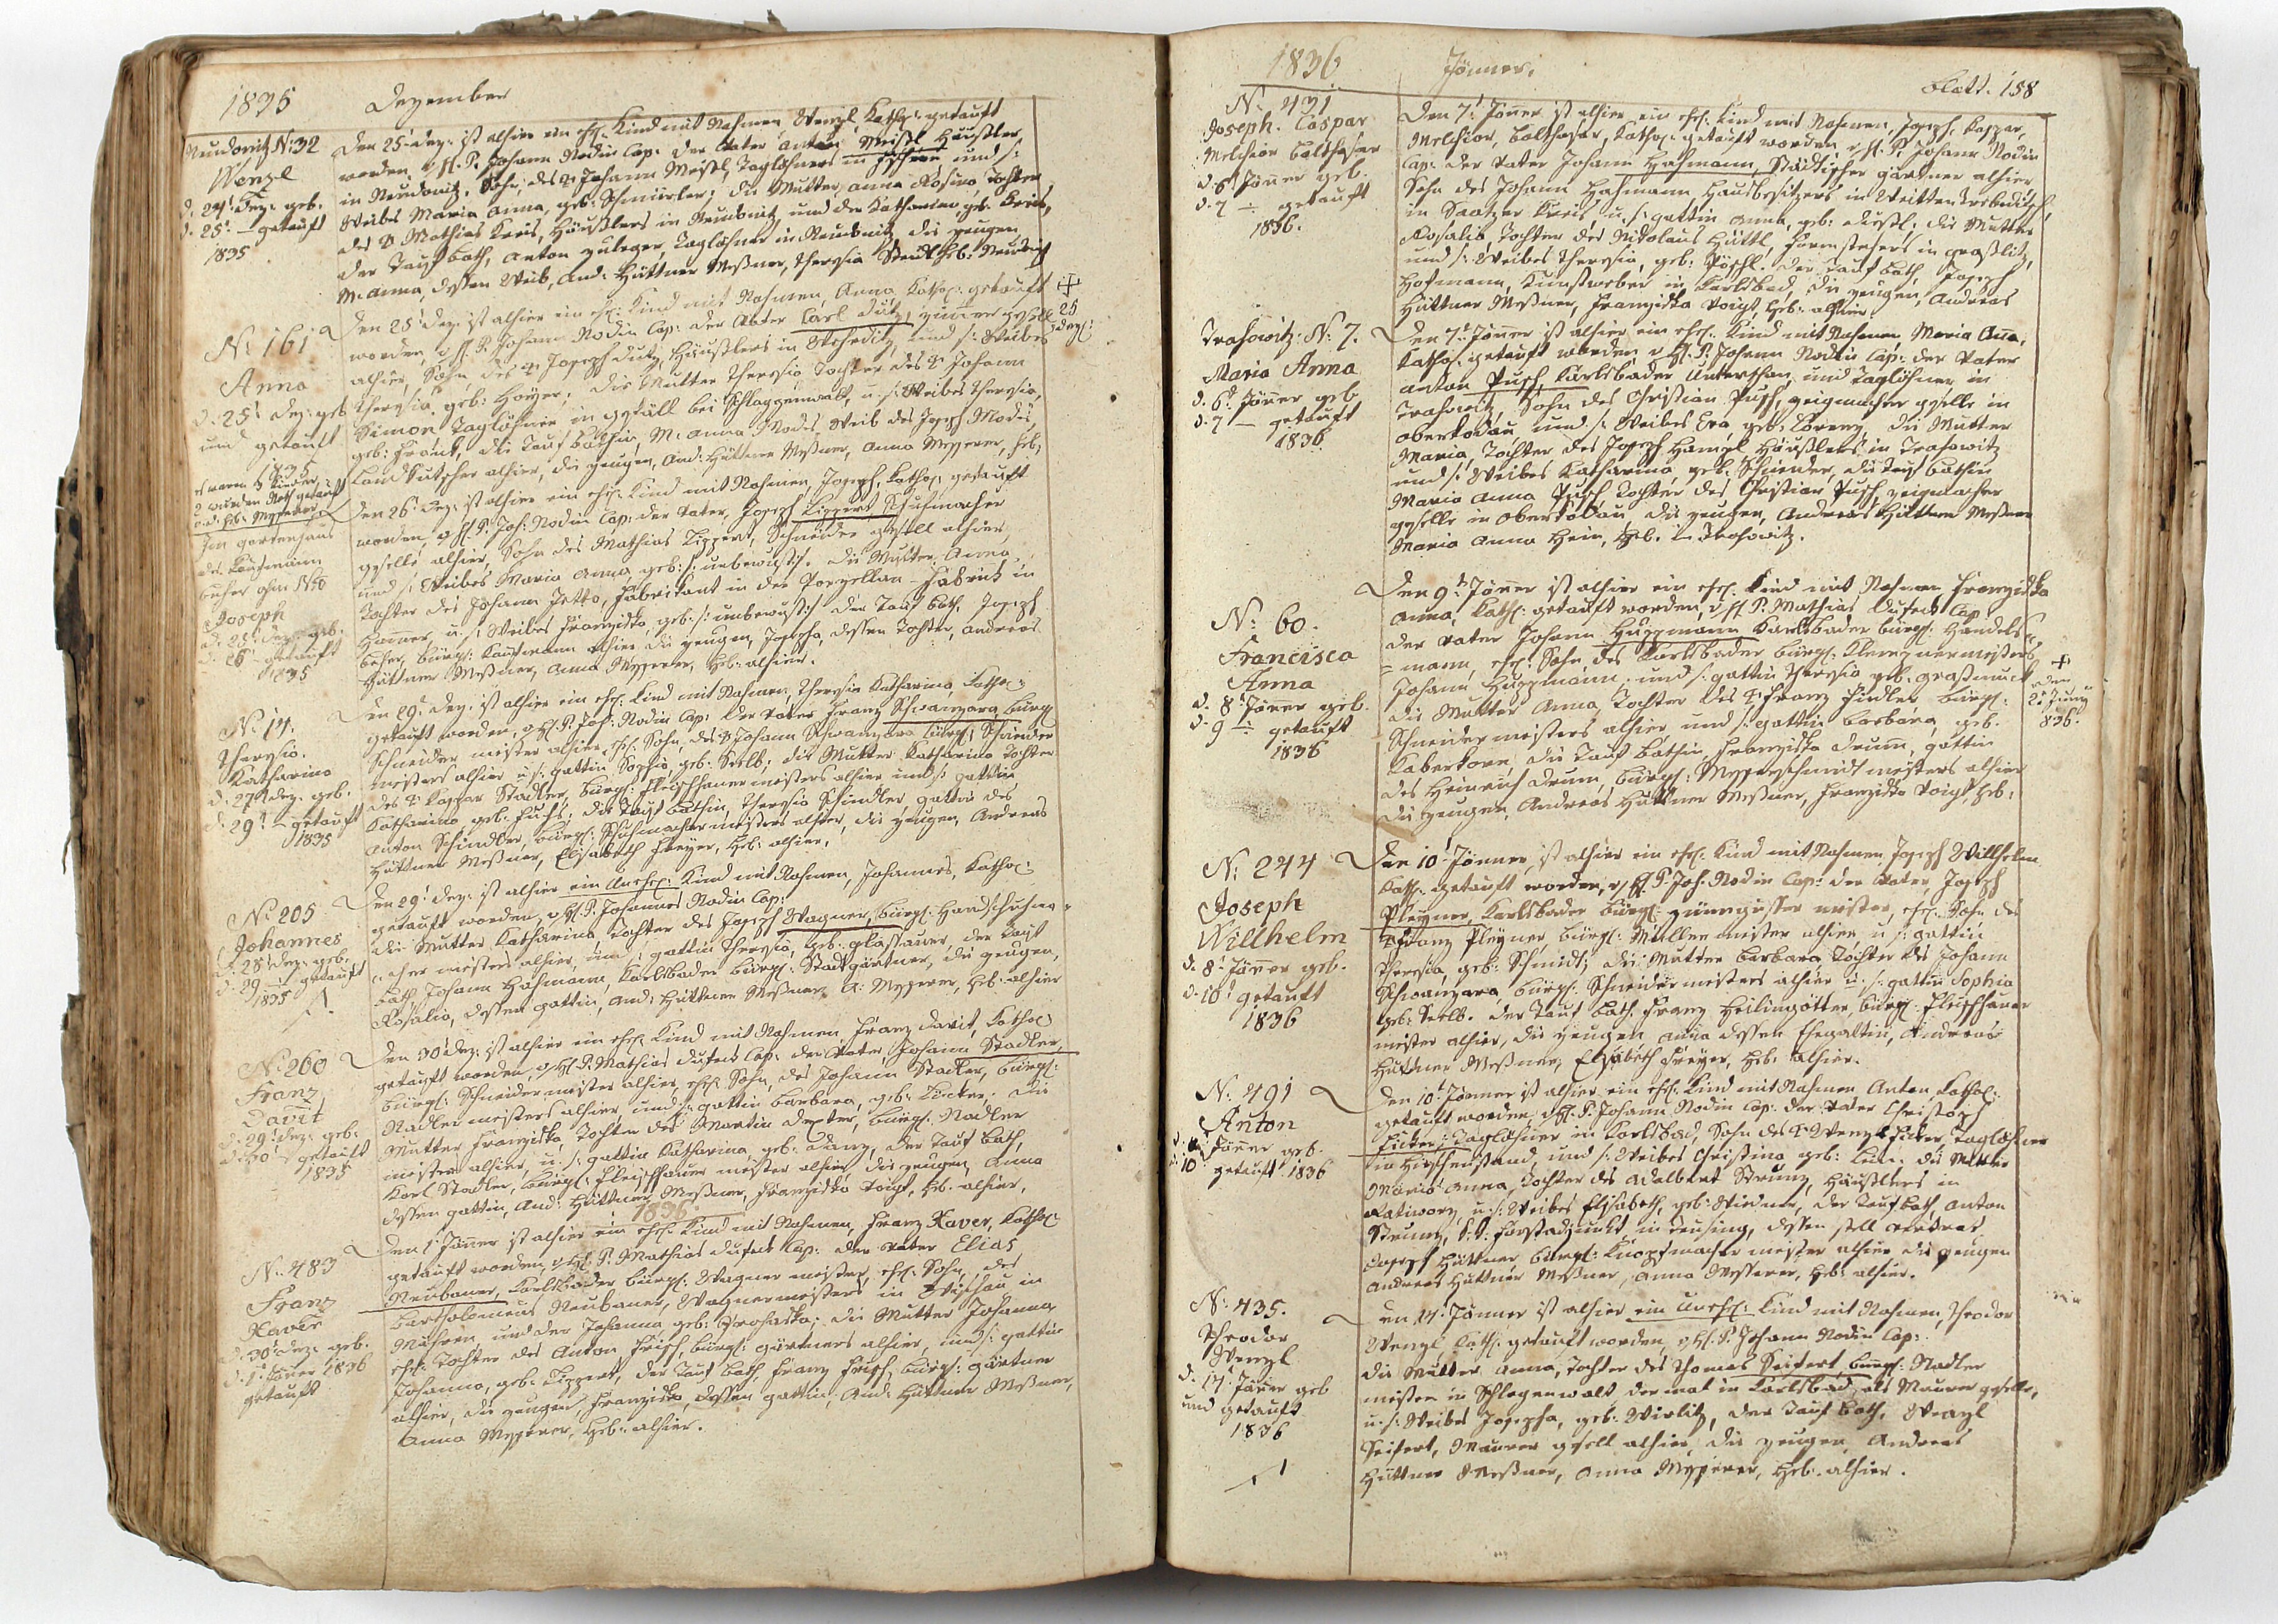 1835 Dezember
Neudonitz N: 32
Wenzl
d. 24t Dez: geb.
d. 25t — getauft
1835
Den 25t Dez: ist alhier ein ehel: Kind mit Nahmen Wenzl, Kathol: getauft
worden, v H. P. Johann Nodin Cap: der Vater Anton Meißl Häußler
in Neudonitz, Sohn des Johann Meißl, Taglöhners in und s:
Weibes Maria Anna, geb: die Mutter Anna Rosina, Tochter
des Mathias Häußlers in und der Katharina geb:
der Taufbath, Anton Taglöhner in Neudonitz die Zeugen
M: Anna, dessen Weib, And: Hüttner Meßner, Theresia Heb:
N: 161
Anna
d. 25t Dez: geb
und getauft
1835
Den 25t Dez: ist alhier ein ehel: Kind mit Nahmen, Anna Kathol: getauft
worden, v H. P. Johann Nodin Cap: der Vater Carl Dutz, Zimmer gesell
alhier, Sohn des Joseph Dutz, Häußlers in und s: Weibes
Theresia, geb: Hoyer; die Mutter Theresia Tochter des Johann
Simon Taglöhner in bei Schlaggenwalt, u. s: Weibes Theresia,
geb: Frank, die Taufbathin, M: Anna Weib des Joseph
Landkutscher alhier, die Zeugen, And: Hüttner Meßner, Anna Messerer, Heb:
25
Dez:
Im gartenhaus
des Kaufmann
Joseph
d. 25t Dez: geb.
d. 26 — getauft
1835
Den 26t Dez: ist alhier ein ehel: Kind mit Nahmen, Joseph, Kathol: getauft
worden, v H. P. Joh: Nodin Cap: der Vater, Joseph Lippert Schuhmacher
geselle alhier, Sohn des Mathias Lippert, Schneider gesell alhier,
und s: Weibes Maria Anna geb: s: unbewust s: die Mutter Anna,
Tochter des Johann Fabrikant in der Porzellan-Fabrick in
u. s: Weibes Franziska, geb: s: unbewust s: der Taufbath, Joseph
bürgl: Kaufmann alhier die Zeugen, Josepha, dessen Tochter, Andreas
Hüttner Meßner, Anna Messerer, Heb: alhier.
N: 14.
Theresia.
Katharina
d. 27t Dez. geb.
d. 29t — getauft
1835
Den 29t Dez: ist alhier ein ehel: Kind mit Nahmen, Theresia Katharina, Kathol:
getauft worden, v H. P. Joh: Nodin Cap: der Vater Franz Schwanzara bürgl:
Schneider meister alhier, ehel: Sohn, des Johann Schwanzara bürgl: Schneider
meisters alhier u: s: gattin Sophia, geb: Seelb; die Mutter Katharina Tochter
des Kaspar Stadler, bürgl: Fleischhauermeisters alhier und s: gattin
Katharina geb: die Taufbathin, Theresia Schindler, gattin des
Anton Schindler, bürgl: Schuhmachermeisters alhier, die Zeugen, Andreas
Hüttner Meßner, Elisabeth Heb: alhier.
N: 205
Johannes
d. 28t Dez: geb.
d. 29 — getauft
1835
Den 29t Dez: ist alhier ein Unehel: Kind mit Nahmen, Johannes, Kathol:
getauft worden, v H. P. Johannes Nodin Cap:
die Mutter Katharina, Tochter des Joseph Wagner, bürgl: Handschuhma-
cher meisters alhier, und s: gattin Theresia, geb: Glassauer, der Tauf
bath, Johann Haßmann, Karlsbader bürgl: Stadtgärtner, die Zeugen,
Rosalia, dessen gattin, And: Hüttner Meßner, A: Messerer, Heb: alhier
N: 260
Franz
Davit
d. 29t Dez: geb:
d. 30t — getauft
1835
Den 30t Dez: ist alhier ein ehel: Kind mit Nahmen Franz Davit, Kathol:
getauft worden, v H. P. Mathias Duseck Cap: der Vater, Johann Stadler,
bürgl: Schneidermeister alhier, ehel: Sohn, des Johann Stadler, bürgl:
Nadlermeisters alhier, und s: gattin Barbara, geb: die
Mutter Franziska, Tochter des Martin Dexter, bürgl: Nadler
meisters alhier, u. s: gattin Katharina, geb: Danz, der Taufbath,
Karl Stadler, bürgl: Fleischhauer meister alhier, die Zeugen Anna
dessen gattin, And: Hüttner Meßner, Franziska Voigt, Heb. alhier,
1836.
N: 483
Franz
Xaver
d. 30t Dez: geb.
d. 1t Jäner 1836
getauft
Den 1t Jäner ist alhier ein ehel: Kind mit Nahmen, Franz Xaver, Kathol:
getauft worden, v H. P. Mathias Duseck Cap: der Vater Elias
Neubauer, Karlsbader bürgl: Wagner meister, ehel: Sohn des
Bartholomeus Neubauer, Wagnermeisters in in
Mähren, und der Johanna geb: Prohaska; die Mutter Johanna
ehel: Tochter des Anton Frisch, bürgl: gärtners alhier, und s: gattin
Johanna, geb: Lippert, der Taufbath, Franz Frisch, bürgl: gärtner
alhier, die Zeugen, Franziska, dessen gattin, And: Hüttner Meßner,
Anna Messerer, Heb: alhier.
1836 Jänner. Blatt. 158
N: 431
Joseph. Caspar
Melchior Balthasar
d. 6t Jäner geb.
d. 7 — getauft
1836.
Den 7t Jäner ist alhier ein ehel: Kind mit Nahmen, Joseph, Kaspar,
Melchior, Balthasar, Kathol: getauft worden, v H. P. Johann Nodin
Cap: der Vater Johann Haßmann, Städtischer gärtner alhier
Sohn des Johann Haßmann Hausbesitzers in
in Saatzer Kreis u. s: gattin Anna, geb: die Mutter
Rosalia, Tochter des Nikolaus Hüttl, in Graßlitz,
und s: Weibes Theresia, geb: Pöschl. der Taufbath, Joseph
Hofmann, in Karlsbad, die Zeugen, Andreas
Hüttner Meßner, Franziska Voigt, Heb: alhier.
Trasowitz: N: 7.
Maria Anna
d. 6t Jäner geb
d. 7 — getauft
1836.
Den 7t Jäner ist alhier ein ehel: Kind mit Nahmen Maria Anna,
Kathol: getauft worden, v H. P. Johann Nodin Cap: der Vater
Anton Pusch, Karlsbader Unterthan und Taglöhner in
Trasowitz, Sohn des Christian Pusch, Zeigmacher geselle in
Oberkodau und s: Weibes Eva geb: Lorenz, die Mutter
Maria, Tochter des Joseph Häußlers in Trasowitz
und s: Weibes Katharina, geb: Schneider, die Taufbathin
Maria Anna Pusch Tochter des Christian Pusch, Zeigmacher
geselle in Oberkodau die Zeugen, Andreas Hüttner Meßner
Maria Anna Hein, Heb. in Trasowitz.
N: 60.
Francisca
Anna
d. 8t Jäner geb.
d. 9 — getauft
1836
Den 9t Jäner ist alhier ein ehel: Kind mit Nahmen Franziska
Anna, Kathol: getauft worden, v H. P. Mathias Duseck Cap.
der Vater Johann Huppmann Karlsbader bürgl: Handels-
=mann, ehel: Sohn, des Karlsbader bürgl: Klempnermeisters
Johann Huppmann, und s: gattin Theresia geb. Graßmuck
die Mutter Anna, Tochter des Franz Pindler, bürgl:
Schneidermeisters alhier, und s: gattin Barbara, geb.
Haberkorn, die Taufbathin Franziska Drumm, gattin
des Heinrich Drum, bürgl: Messerschmidt meisters alhier
die Zeugen, Andreas Hüttner Meßner, Franziska Voigt, Heb:
den
2t Juny
836.
N: 244
Joseph
Willhelm
d. 8t Jäner geb.
d. 10t getauft
1836
Den 10t Jänner ist alhier ein ehel: Kind mit Nahmen Joseph Willhelm
Kathol: getauft worden, v H. P. Joh. Nodin Cap: der Vater, Joseph
Pleyner, Karlsbader bürgl: Zinngiesser meister, ehel: Sohn des
Franz Pleyner, bürgl: Müllermeister alhier, u s: gattin
Theresia, geb: Schmidt; die Mutter Barbara, Tochter des Johann
Schwanzara, bürgl: Schneidermeisters alhier u. s: gattin Sophia
geb: Seelb. der Taufbath, Franz Heilingötter, bürgl: Fleischhauer
meister alhier, die Zeugen, Anna dessen Ehegattin, Andreas
Hüttner Meßner, Elisabeth Heb. alhier.
N: 491
Anton
Jäner geb.
10t getauft 1836
Den 10t Jänner ist alhier ein ehel: Kind mit Nahmen Anton, Kathol:
getauft worden, v H. P. Johann Nodin Cap: der Vater Christoph
Taglöhner in Karlsbad, Sohn des Wenzl Taglöhner
in Hirschenstand, und s: Weibes Christina geb: die Mutter
Maria Anna, Tochter des Adalbert Strunz, Häußlers in
u: s: Weibes Elisabeth, geb: der Taufbath, Anton
Strunz, k. k. Forstadjunkt in Teusing, dessen stell vertrat
Joseph Hüttner, bürgl: Knopfmacher meister alhier die Zeugen
Andreas Hüttner Meßner, Anna Messerer, Heb: alhier.
N: 435.
Theodor
Wenzl
d. 14t Jäner geb
und getauft
1836
Den 14t Jänner ist alhier ein Unehel: Kind mit Nahmen, Theodor
Wenzl, Kathol: getauft worden, v H. P. Johann Nodin Cap:
die Mutter Anna, Tochter des Thomas Seifert, bürgl: Nadler
meister in Schlagenwalt dermal in Karlsbad, als Maurer geselle,
u: s: Weibes Josepha, geb: der Taufbath, Wenzl
Seifert, Maurer gesell alhier, die Zeugen, Andreas
Hüttner Meßner, Anna Messerer, Heb: alhier.